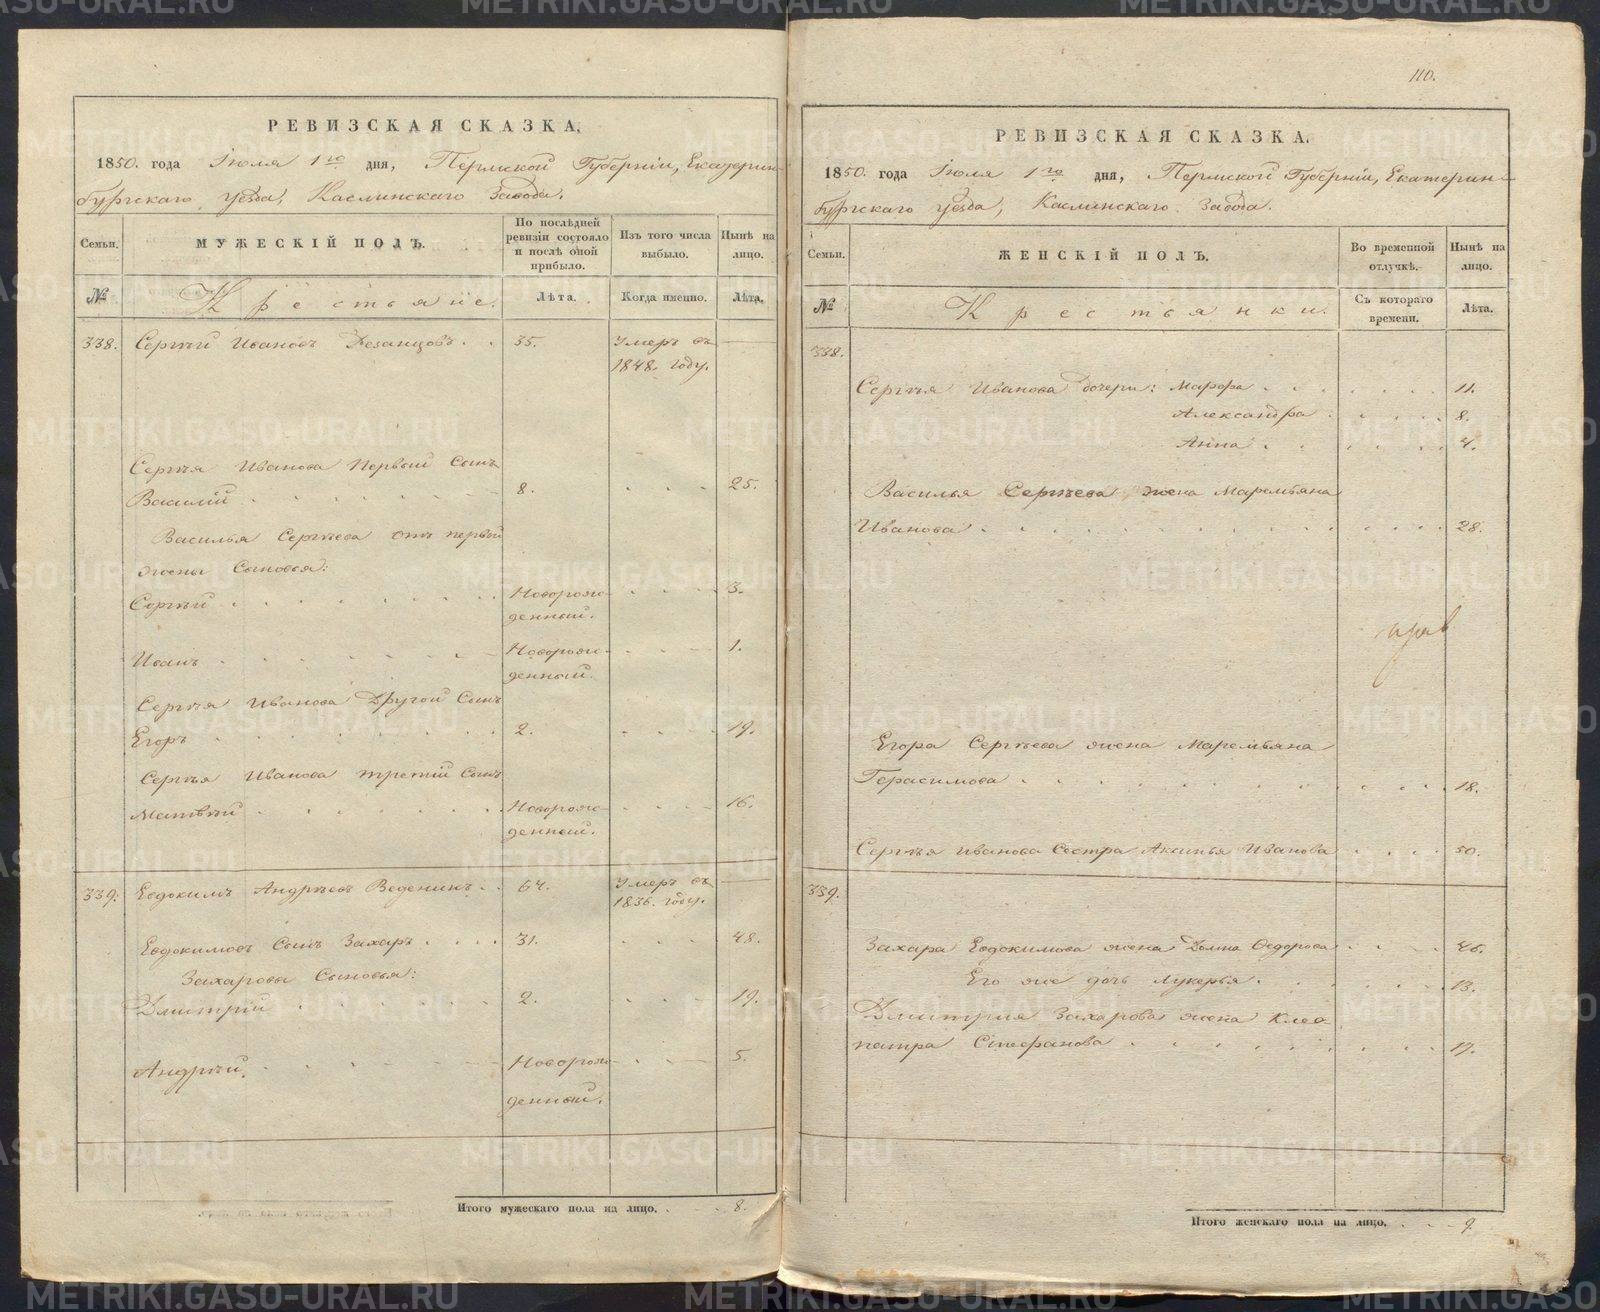 РЕВИЗСКАЯ СКАЗКА,
1850. года Іюля 1го дня, Пермской Губерніи, Екатерин-
бургскаго уѣзда, Каслинскаго Завода.
Семьи.
МУЖЕСКІЙ ПОЛЪ.
По послѣдней ревизіи состояло и послѣ оной прибыло.
Изъ того числа выбыло.
Нынѣ на лицо.
№
Крестьяне.
Лѣта.
Когда именно.
Лѣта.
338. Сергѣй Ивановъ . . 35. Умеръ въ
1848. году.
Сергѣя Иванова Первый Сынъ
Василій 8. 25.
Василья Сергѣева отъ первой
жены Сыновья:
Сергѣй Новорож- 3.
денный.
Иванъ Новорож- 1.
денный.
Сергѣя Иванова Другой Сынъ
Егоръ 2. 19.
Сергѣя Иванова третій Сынъ
Матвѣй Новорож- 16.
денный.
339. Евдокимъ Андрѣевъ Веденинъ . . 64. Умеръ въ
1836. году.
Евдокимовъ Сынъ Захаръ 31. 48.
Захаровы Сыновья:
Дмитрій 2. 19.
Андрѣй. Новорож- 5.
денный.
Итого мужескаго пола на лицо. 8.
110.
РЕВИЗСКАЯ СКАЗКА.
1850. года Іюля 1го дня, Пермской Губерніи, Екатерин-
бургскаго уѣзда, Каслинскаго Завода.
Семьи.
ЖЕНСКІЙ ПОЛЪ.
Во временной отлучкѣ.
Нынѣ на лицо.
№
Крестьянки.
Съ котораго времени.
Лѣта.
338.
Сергѣя Иванова дочери: Марфа 11.
Александра 8.
Анна 4.
Василья Сергѣева жена Маремьяна
Иванова 28.
Егора Сергѣева жена Маремьяна
Герасимова 18.
Сергѣя Иванова Сестра Аксинья Иванова 50.
339.
Захара Евдокимова жена Домна Федорова 46.
Его же дочь Лукерья 13.
Дмитрія Захарова жена Клео-
патра Стефанова 17.
Итого женскаго пола на лицо. 9.
METRIKI.GASO-URAL.RU